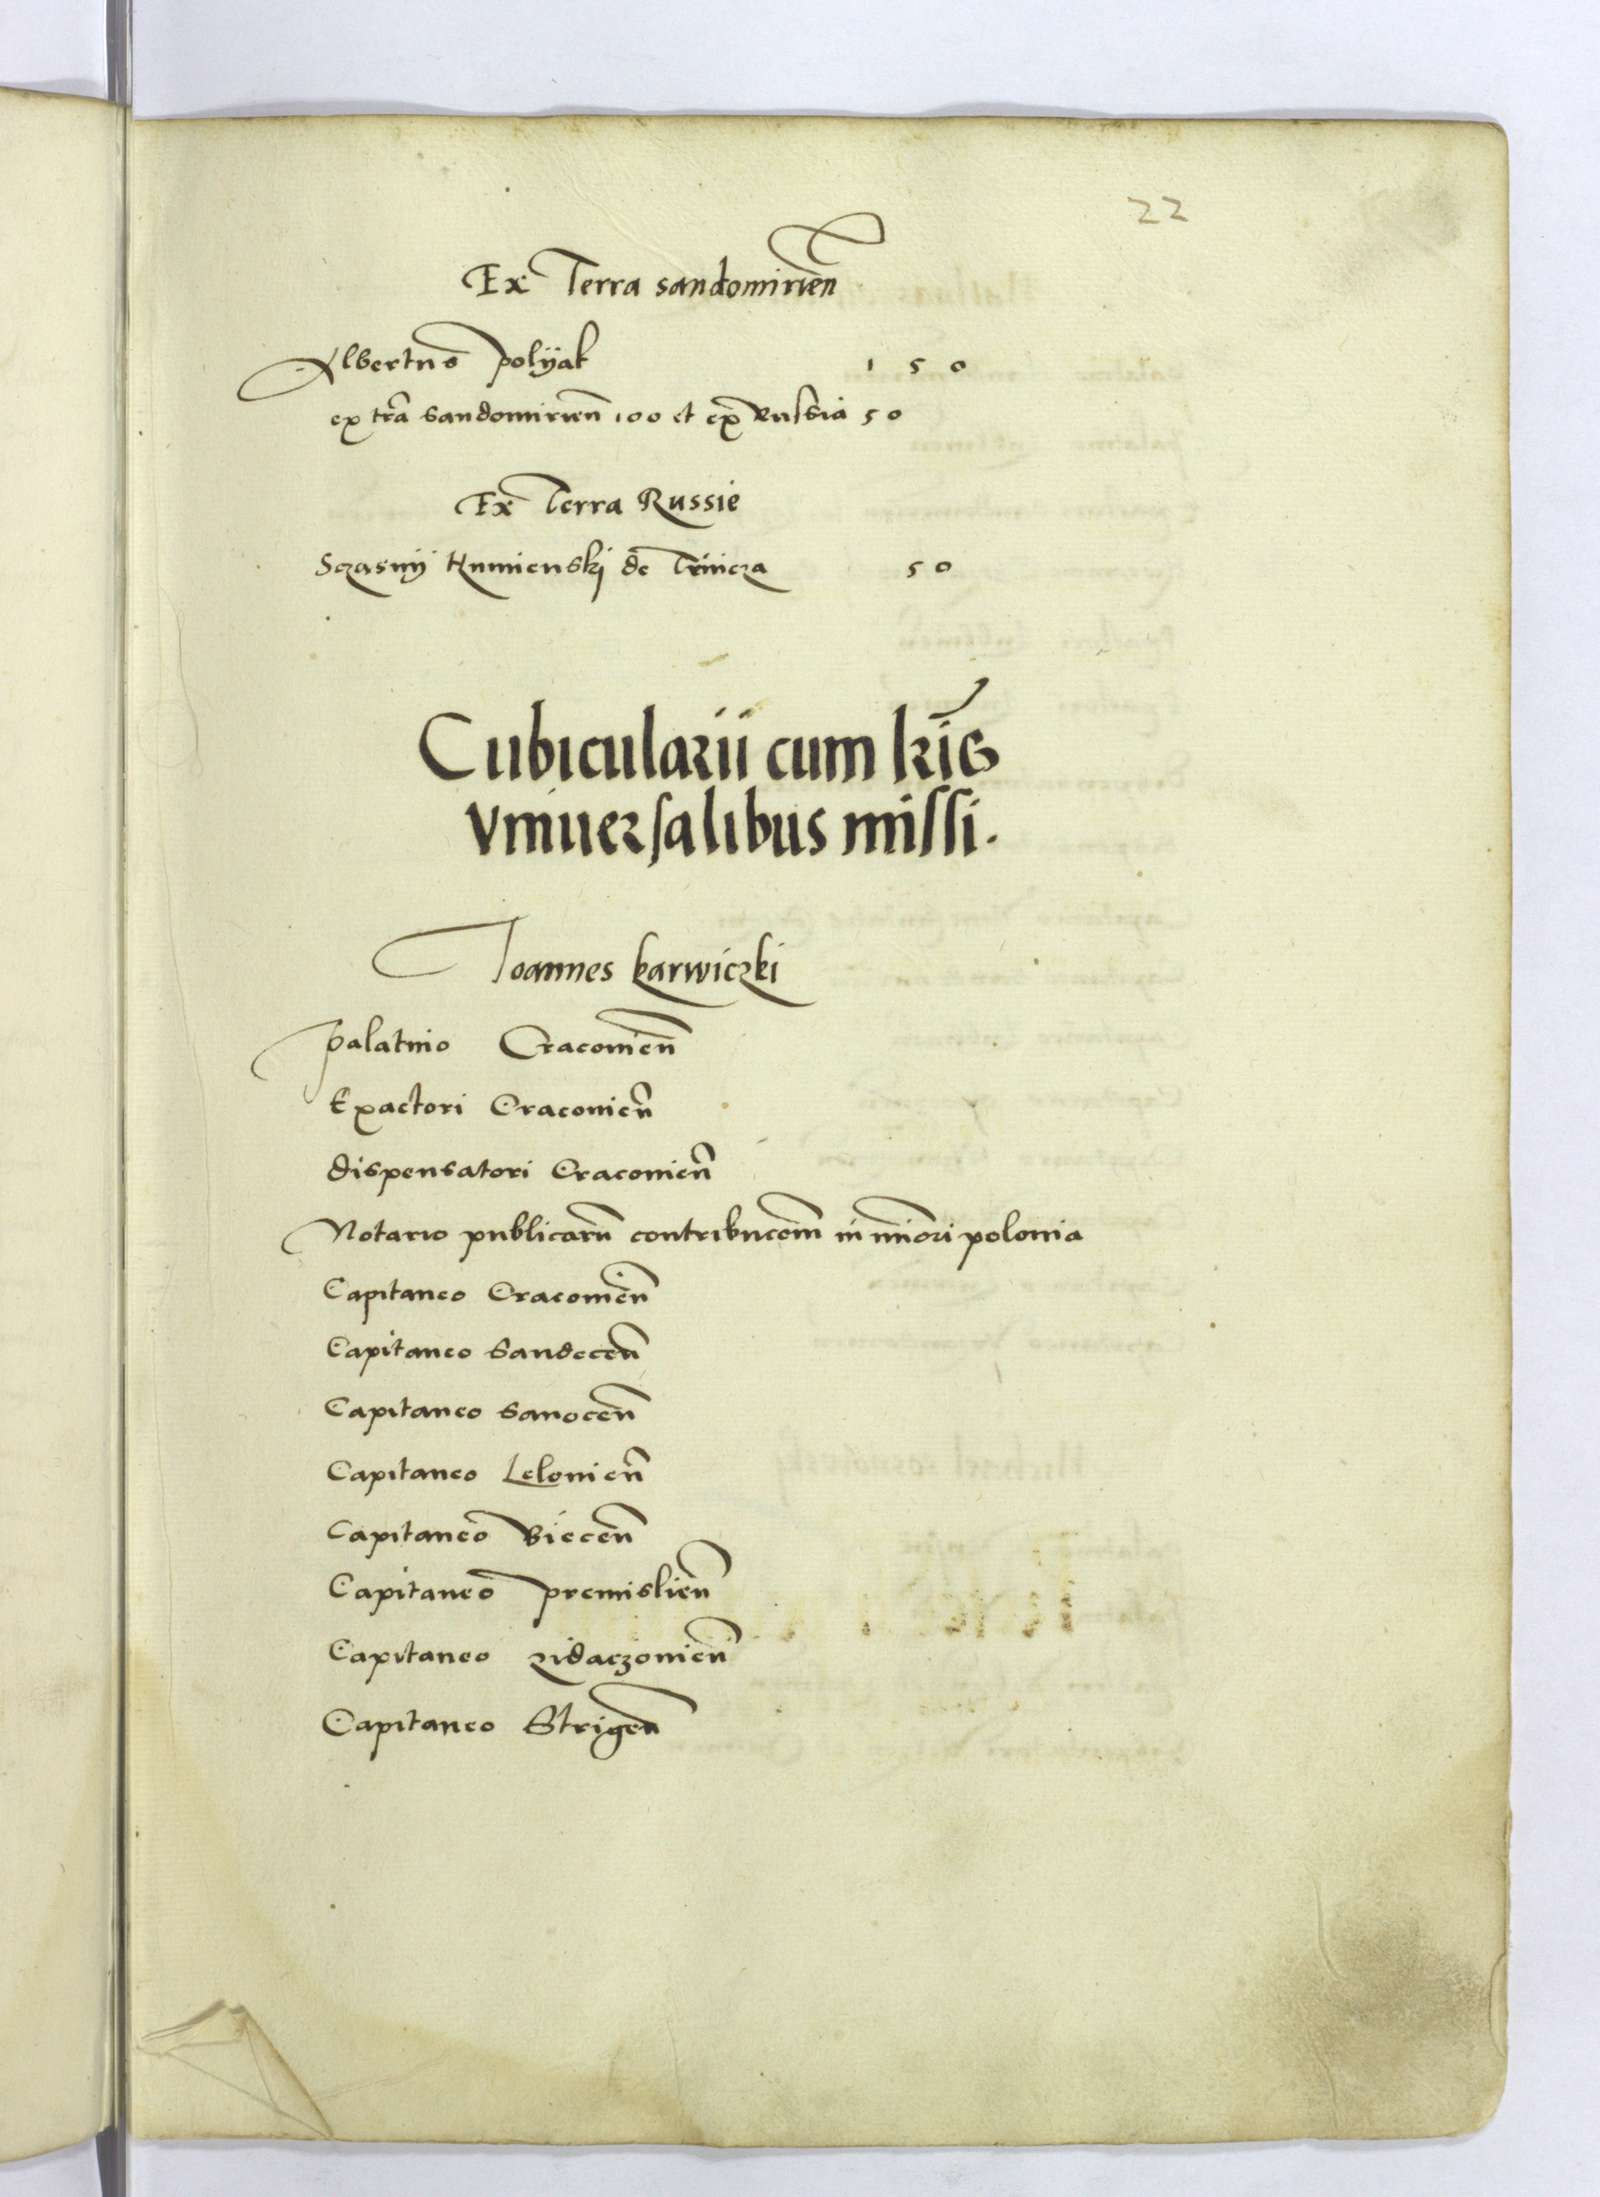 22
Ex Terra sandomirien̄
Albertus polÿak 1 5 0
ex tr̄a Sandomirien̄ 100 et ex Russia 50
Ex Terra Russie
Sczasnÿ 50
Cubicularii cum lr̄is
vniuersalibus missi.
Joannes karwiczki
palatino Cracouien̄
Exactori Cracouien̄
dispensatori Cracouien̄
Notario publicarū contribucom̄ in minori polonia
Capitaneo Cracouien̄
Capitaneo Sandecen̄
Capitaneo Sanocen̄
Capitaneo Lelouien̄
Capitaneo Biecen̄
Capitaneo premislien̄
Capitaneo zidaczouien̄
Capitaneo Strigen̄